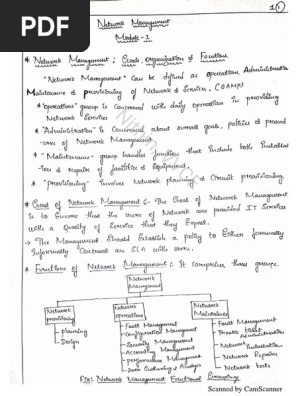 PDF
1
Network Management
Module-1
* Network Management: Goals, Organization & Functions
"Network Management" can be defined as Operation, Administration
Maintenance & provisioning of Network & Services, (OAMP)
* "Operation" group is concerned with daily operation in providing
Network Services
* "Administration" is concerned about overall goals, policies &
of Network Management
* "Maintenance" group handles function that include both
& repair of facilities & Equipment.
* "provisioning" involves Network planning & Circuit provisioning.
* Goal of Network Management :- The Goal of Network Management
is to Ensure that the users of Network are provided IT Service
with a Quality of Service that they Expect.
→ The Management Should Establish a policy to Either formally
Informally Contract an SLA with users.
* Functions of Network Management :- It comprises three groups.
Network
Management
Network
provisioning
→ planning
→ Design
Network
operations
→ Fault Management
→ Configuration Management
→ Security Management
→ Accounting Management
→ performance Management
→ Data Gathering & Analysis
Network
Maintenance
→ Fault Management
→ Trouble Ticket
Administration
→ Network Installation
→ Network Repairs
→ Network tests
Fig: Network Management Functional
Scanned by CamScanner